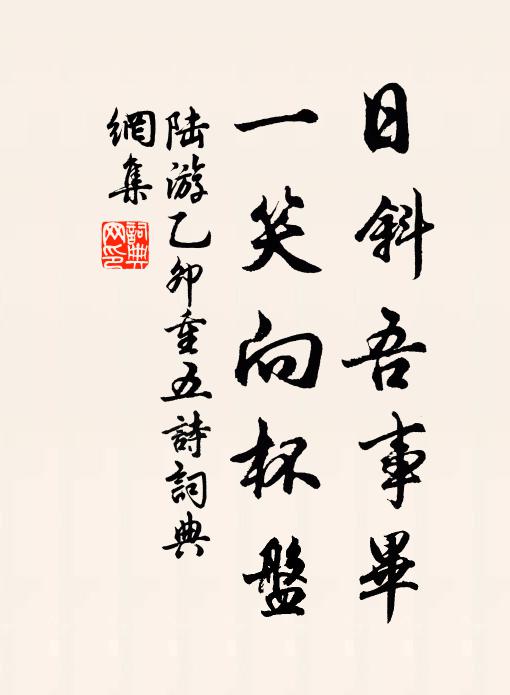 日斜吾事畢
一笑向杯盤
陆游乙卯重五詩詞典
網集
詞典
网印